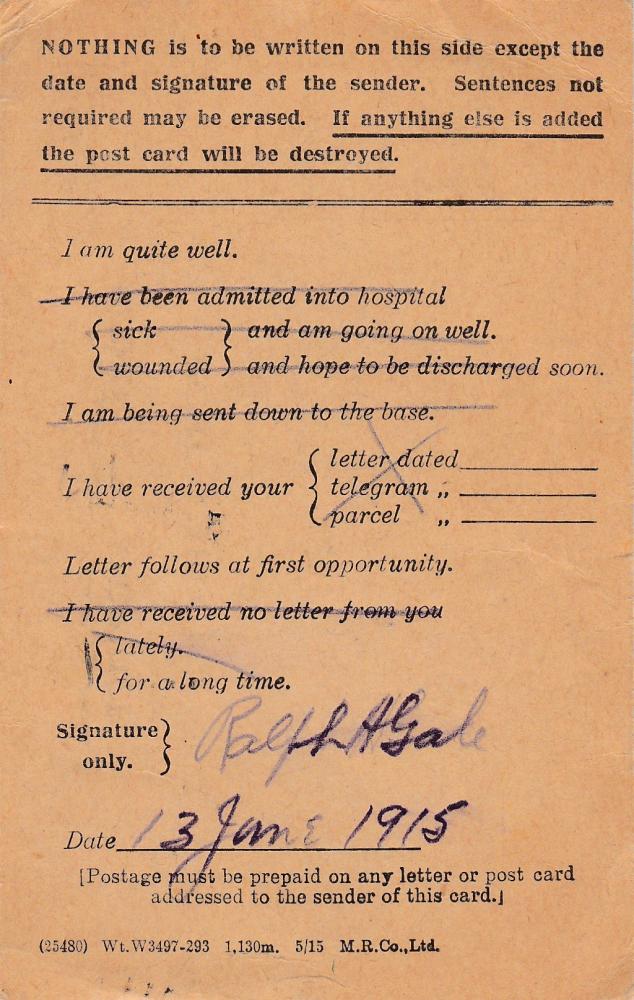 NOTHING is to be written on this side except the
date and signature of the sender. Sentences not
required may be erased. If anything else is added
the post card will be destroyed.
I am quite well.
I have been admitted into hospital
{ sick } and am going on well.
{ wounded } and hope to be discharged soon.
I am being sent down to the base.
letter dated
I have received your { telegram „
parcel „
Letter follows at first opportunity.
I have received no letter from you
{ lately.
{ for a long time.
Signature } Ralph A Gale
only.
Date 13 June 1915
[Postage must be prepaid on any letter or post card
addressed to the sender of this card.]
(25480) Wt.W3497-293 1,130m. 5/15 M.R.Co.,Ltd.